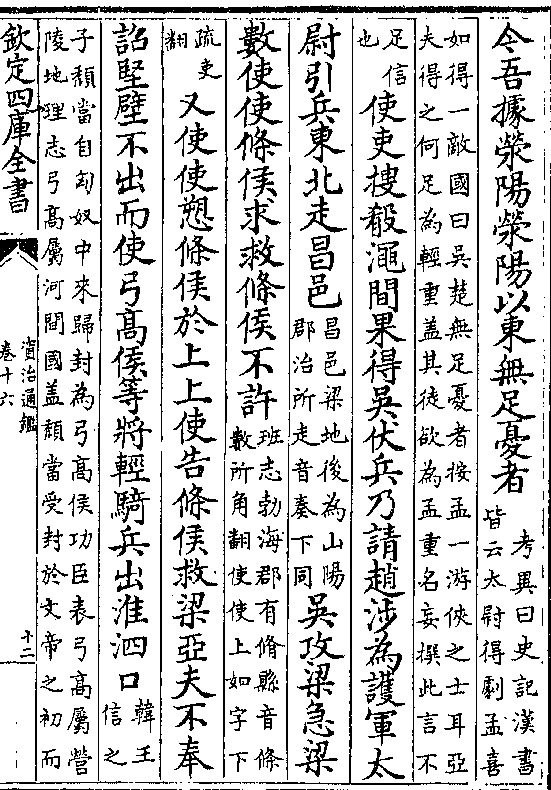 今吾據滎陽滎陽以東無足憂者考異曰史記漢書
皆云太尉得劇孟喜
如得一敵國曰吳楚無足憂者按孟一游俠之士耳亞
夫得之何足為輕重盖其徒欲為孟重名妄撰此言不
足信
也使吏搜殽澠間果得吳伏兵乃請趙涉為護軍太
尉引兵東北走昌邑昌邑梁地後為山陽
郡治所走音奏下同吳攻梁急梁
數使使條侯求救條侯不許班志勃海郡有脩縣音條
數所角翻使使上如字下
疏吏
翻又使使愬條侯於上上使告條侯救梁亞夫不奉
詔堅壁不出而使弓髙侯等將輕騎兵出淮泗口韓王
信之
子頽當自匈奴中來歸封為弓髙侯功臣表弓髙屬營
陵地理志弓髙屬河間國盖頽當受封於文帝之初而
欽定四庫全書
資治通鑑
卷十六
十二